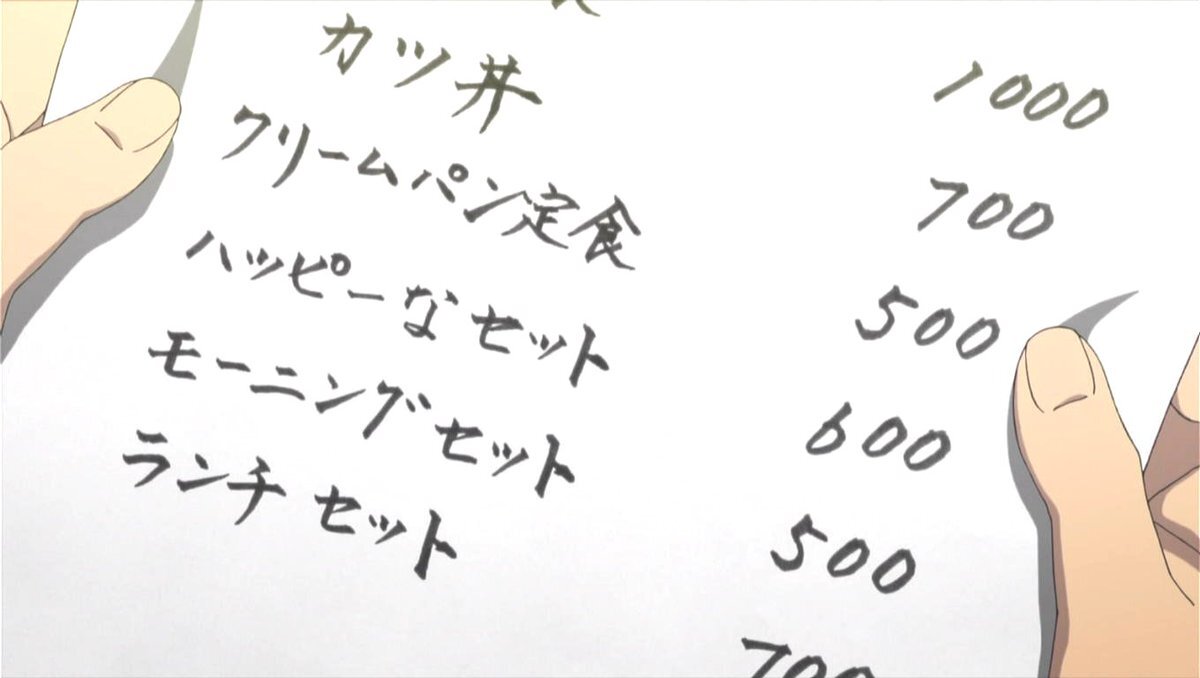 1000
カツ丼 700
クリームパン定食 500
ハッピーなセット 600
モーニングセット 500
ランチセット 700